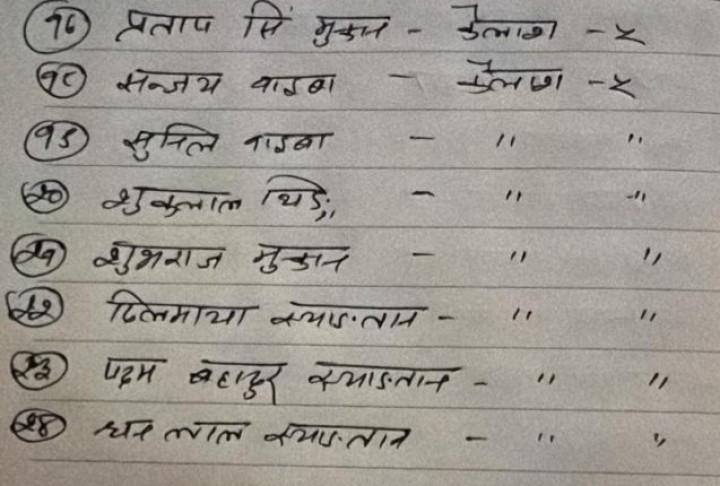 १७ प्रताप सिं मुक्तान - कैलाश - ५
१८ सन्जय वाइबा - कैलाश - ५
१९ सुनिल वाइबा - " "
२० शुकलाल थिङ - " - "
२१ शुभराज मुक्तान - " "
२२ दिलमाया स्याङतान - " "
२३ पदम बहादुर स्याङतान - " "
२४ धन लाल स्याङतान - " "